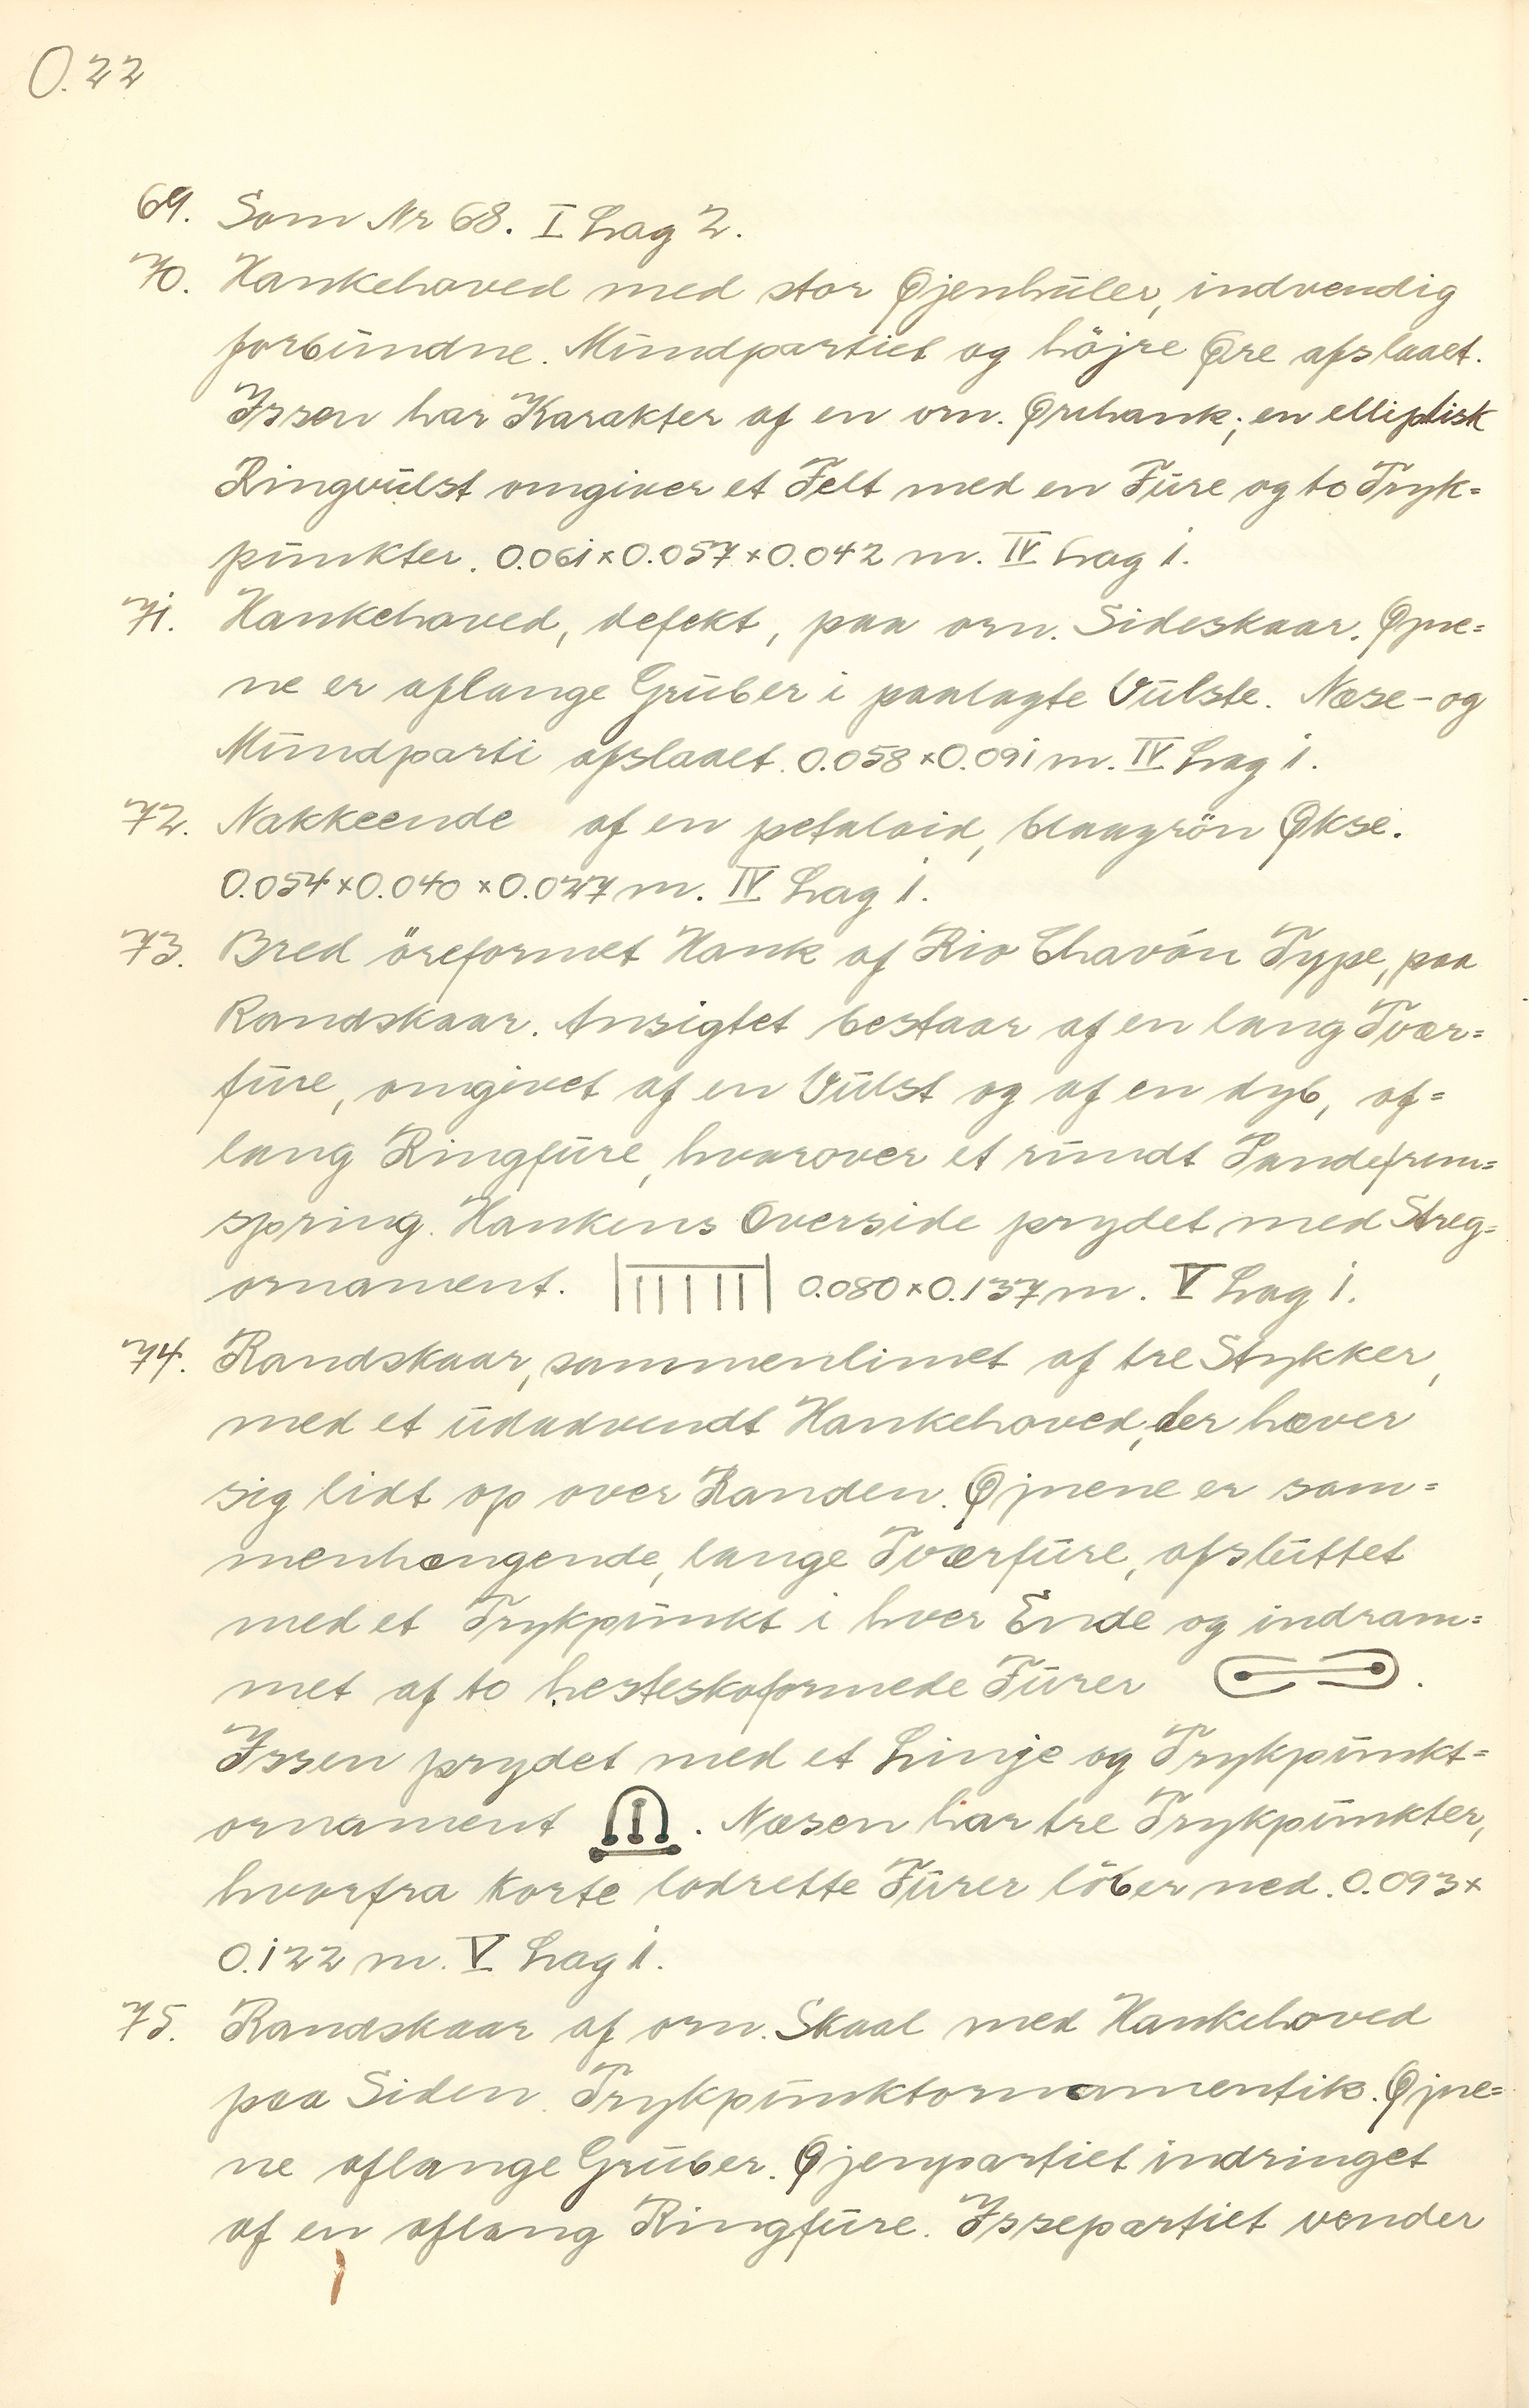 O.22
69. Som Nr 68. I Lag 2.
70. Hankehoved med stor Øjenhuler, indvendig
forbundne. Mundpartiet og höjre Øre afslaaet.
Issen har Karakter af en orn. Ørehank; en elliptisk
Ringvulst omgiver et Felt med en Fure og to Tryk=
punkter. 0.061×0.057×0.042 m. IV Lag 1.
71. Hankehoved, defekt, paa orn. Sideskaar. Øjne=
ne er aflange Gruber i paalagte Vulste. Næse- og
Mundparti afslaaet. 0.058×0.091 m. IV Lag 1.
72. Nakkeende af en petaloid, blaagrön Økse.
0.054×0.040×0.027 m. IV Lag 1.
73. Bred öreformet Hank af Rio Chavón Type, paa
Randskaar. Ansigtet bestaar af en lang Tvær=
fure, omgivet af en Vulst og af en dyb, af=
lang Ringfure, hvorover et rundt Pandefrem=
spring. Hankens Overside prydet med Streg=
ornament. 0.080×0.137 m. V Lag 1.
74. Randskaar, sammenlimet af tre Stykker,
med et udadvendt Hankehoved, der hæver
sig lidt op over Randen. Øjnene er sam=
menhængende, lange Tværfure, afsluttet
med et Trykpunkt i hver Ende og indram=
met af to hesteskoformede Furer .
Issen prydet med et Linje og Trykpunkt=
ornament . Næsen har tre Trykpunkter,
hvorfra korte lodrette Furer löber ned. 0.093×
0.122 m. V Lag 1.
75. Randskaar af orn. Skaal med Hankehoved
paa Siden. Trykpunktornamentik. Øjne=
ne aflange Gruber. Øjenpartiet indringet
af en aflang Ringfure. Issepartiet vender